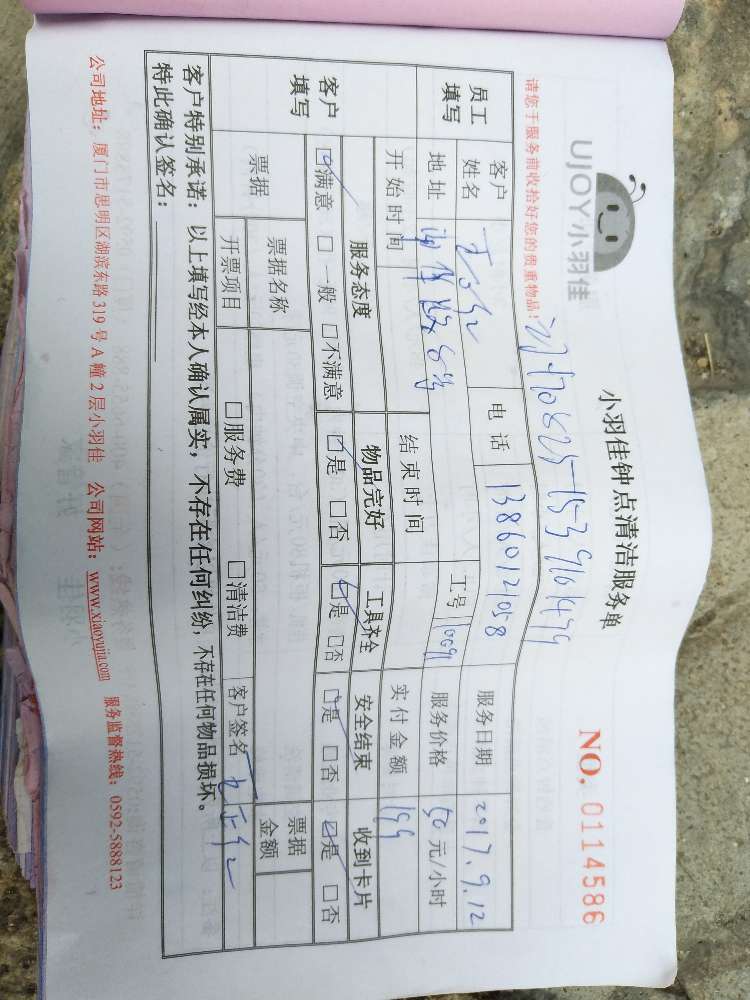 UJOY小羽佳
小羽佳钟点清洁服务单
NO. 0114586
请您于服务前收拾好您的贵重物品!
员工填写 客户姓名 电话 13860121058 服务日期 2017.9.12
地址 工号 服务价格 50 元/小时
开始时间 结束时间 实付金额 199
客户填写 服务态度 物品完好 工具齐全 安全结束 收到卡片
☑满意 □一般 □不满意 ☑是 □否 ☑是 □否 ☑是 □否 ☑是 □否
票据 票据名称 票据金额
开票项目 □服务费 □清洁费 客户签名
客户特别承诺：以上填写经本人确认属实，不存在任何纠纷，不存在任何物品损坏。
特此确认签名：
公司地址：厦门市思明区湖滨东路319号A幢2层小羽佳 公司网站：www.xiaoyujia.com 服务监督热线：0592-5888123